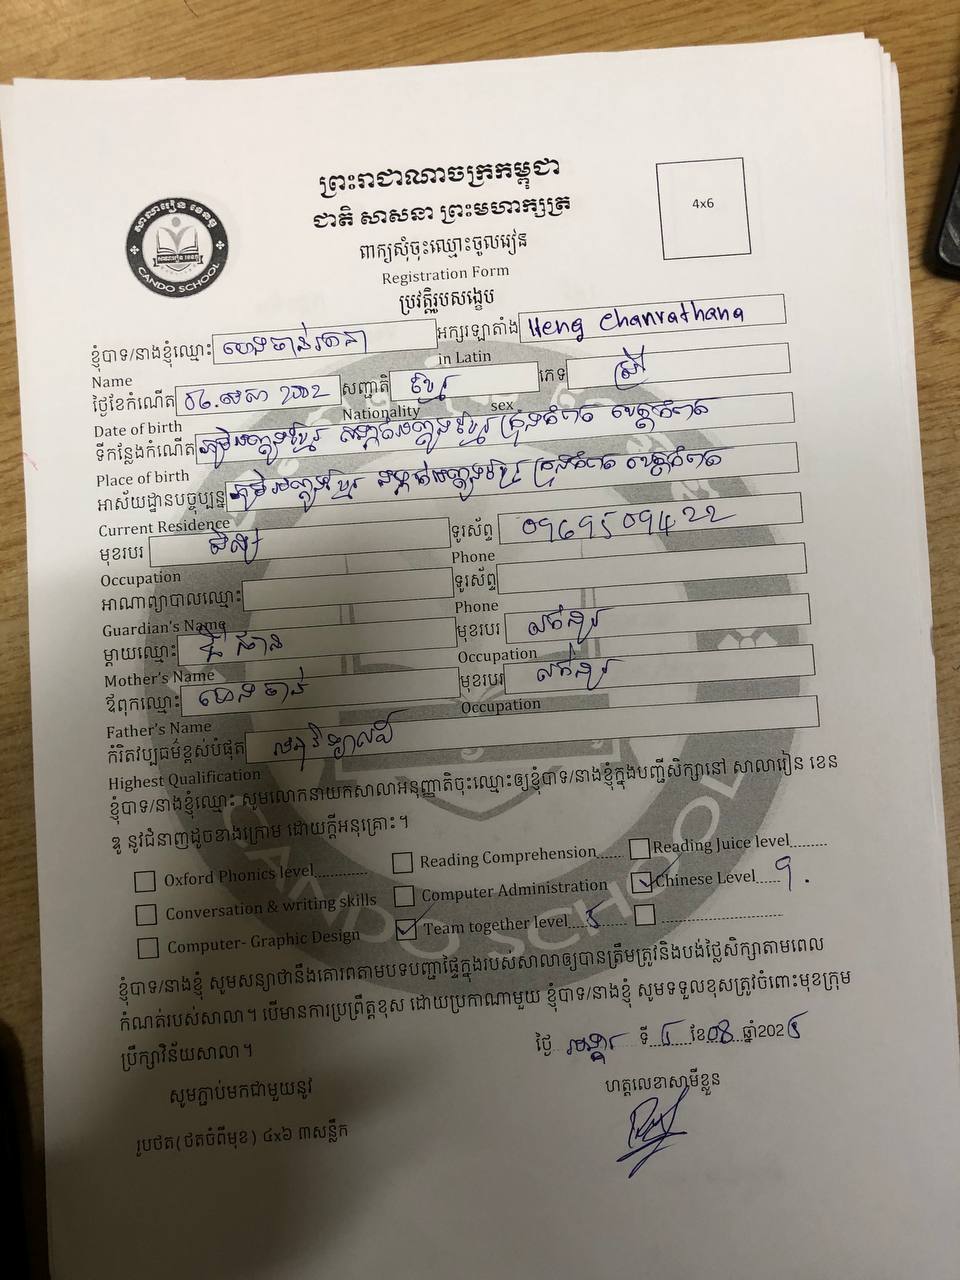 ព្រះរាជាណាចក្រកម្ពុជា
ជាតិ សាសនា ព្រះមហាក្សត្រ
សាលារៀន ខេនឌូ
CANDO SCHOOL
4x6
ពាក្យសុំចុះឈ្មោះចូលរៀន
Registration Form
ប្រវត្តិរូបសង្ខេប
ខ្ញុំបាទ/នាងខ្ញុំឈ្មោះ ហេង ចាន់រតនា អក្សរឡាតាំង Heng Chanrathana
Name in Latin
ថ្ងៃខែកំណើត មេសា 2002 សញ្ជាតិ ខ្មែរ ភេទ ស្រី
Date of birth Nationality sex
ទីកន្លែងកំណើត ភូមិ ខ្មែរ សង្កាត់ ខ្មែរ ក្រុងកំពត ខេត្តកំពត
Place of birth
អាស័យដ្ឋានបច្ចុប្បន្ន ភូមិ ខ្មែរ សង្កាត់ ខ្មែរ ក្រុងកំពត ខេត្តកំពត
Current Residence
មុខរបរ សិស្ស ទូរស័ព្ទ 0969509422
Occupation Phone
អាណាព្យាបាលឈ្មោះ ទូរស័ព្ទ
Guardian's Name Phone
ម្តាយឈ្មោះ មុខរបរ លក់ដូរ
Mother's Name Occupation
ឪពុកឈ្មោះ ហេង ចាន់ មុខរបរ លក់ដូរ
Father's Name Occupation
កំរិតវប្បធម៌ខ្ពស់បំផុត
Highest Qualification
ខ្ញុំបាទ/នាងខ្ញុំឈ្មោះ សូមលោកនាយកសាលាអនុញ្ញាតិចុះឈ្មោះឲ្យខ្ញុំបាទ/នាងខ្ញុំក្នុងបញ្ជីសិក្សានៅ សាលារៀន ខេន
ឌូ នូវជំនាញដូចខាងក្រោម ដោយក្តីអនុគ្រោះ។
Oxford Phonics level............... Reading Comprehension...... Reading Juice level.........
Conversation & writing skills Computer Administration Chinese Level......9.
Computer- Graphic Design Team together level...5 ..............................
ខ្ញុំបាទ/នាងខ្ញុំ សូមសន្យាថានឹងគោរពតាមបទបញ្ជាផ្ទៃក្នុងរបស់សាលាឲ្យបានត្រឹមត្រូវនិងបង់ថ្លៃសិក្សាតាមពេល
កំណត់របស់សាលា។ បើមានការប្រព្រឹត្តខុស ដោយប្រកាណាមួយ ខ្ញុំបាទ/នាងខ្ញុំ សូមទទួលខុសត្រូវចំពោះមុខក្រុម
ប្រឹក្សាវិន័យសាលា។
ថ្ងៃ ទី ខែ08 ឆ្នាំ202
សូមភ្ជាប់មកជាមួយនូវ
ហត្ថលេខាសាមីខ្លួន
រូបថត(ថតចំពីមុខ) ៤x៦ ៣សន្លឹក